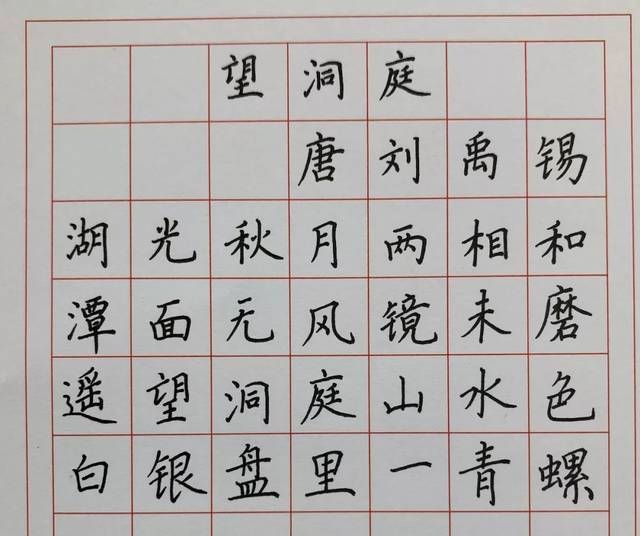 望洞庭
唐刘禹锡
湖光秋月两相和
潭面无风镜未磨
遥望洞庭山水色
白银盘里一青螺